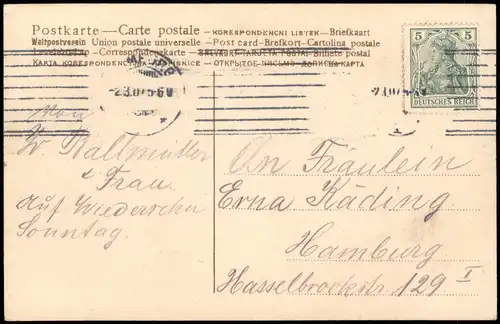 Postkarte — Carte postale
-KORESPONDENCNI LISTEK-Briefkaart
Weltpostverein Union postale universelle -Post card-Brefkort-Cartolina postale
Levelezőlap-Correspondenzkarte -TARJETA POSTAL-Billhete postal
КАРТА KORESPONDENCY -ОТКРЫТОЕ ПИСЬМО-ДОПИСНА КАРТА
5 5
DEUTSCHES REICH
2.3.07.5-6N
2.3.07.5-6N
Von
Wallmüller
& Frau.
Auf Wiedersehn
Sonntag.
An Fräulein
Erna Käding.
Hamburg
Hasselbrookstr. 129 I